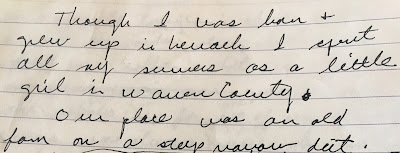 Though I was born &
grew up in Newark I spent
all my summers as a little
girl in Warren County.
Our place was an old
farm on a steep narrow dirt